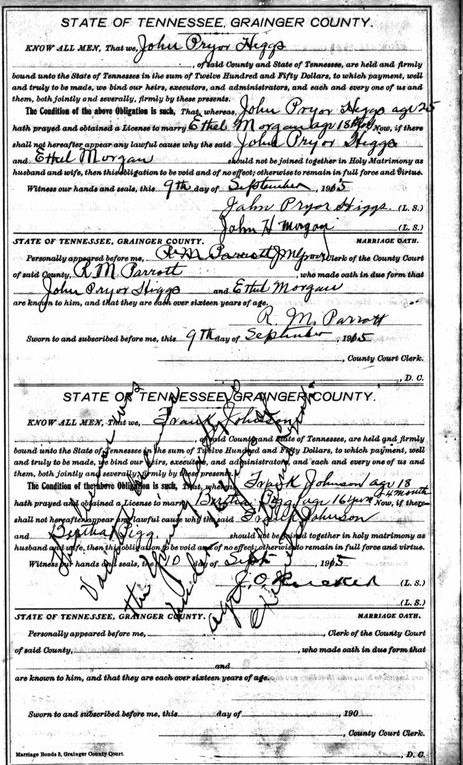 STATE OF TENNESSEE, GRAINGER COUNTY.
KNOW ALL MEN, That we, John Pryor Higgs
, of said County and State of Tennessee, are held and firmly
bound unto the State of Tennessee in the sum of Twelve Hundred and Fifty Dollars, to which payment, well
and truly to be made, we bind our heirs, executors, and administrators, and each and every one of us and
them, both jointly and severally, firmly by these presents.
The Condition of the above Obligation is such, That whereas, John Pryor Higgs age 25
hath prayed and obtained a License to marry Ethel Morgan age 18 Now, if there
shall not hereafter appear any lawful cause why the said John Pryor Higgs
and Ethel Morgan should not be joined together in Holy Matrimony as
husband and wife, then this obligation to be void and of no effect; otherwise to remain in full force and virtue.
Witness our hands and seals, this 9th day of September, 1905
John Pryor Higgs (L. S.)
John H Morgan (L. S.)
STATE OF TENNESSEE, GRAINGER COUNTY. MARRIAGE OATH.
Personally appeared before me, Clerk of the County Court
of said County, R. M. Parrott , who made oath in due form that
John Pryor Higgs and Ethel Morgan
are known to him, and that they are each over sixteen years of age.
R. M. Parrott
Sworn to and subscribed before me, this 9th day of September, 1905
, County Court Clerk.
, D. C.
STATE OF TENNESSEE, GRAINGER COUNTY.
KNOW ALL MEN, That we, Frank Johnson
of said County and State of Tennessee, are held and firmly
bound unto the State of Tennessee in the sum of Twelve Hundred and Fifty Dollars, to which payment, well
and truly to be made, we bind our heirs, executors, and administrators, and each and every one of us and
them, both jointly and severally, firmly by these presents.
The Condition of the above Obligation is such, That whereas, Frank Johnson age 18
hath prayed and obtained a License to marry age 16 years 4 month Now, if there
shall not hereafter appear any lawful cause why the said Frank Johnson
and Bertha should not be joined together in holy matrimony as
husband and wife, then this obligation to be void and of no effect; otherwise to remain in full force and virtue.
Witness our hands and seals, this 10 day of Sept 1905
(L. S.)
(L. S.)
STATE OF TENNESSEE, GRAINGER COUNTY. MARRIAGE OATH.
Personally appeared before me, , Clerk of the County Court
of said County, , who made oath in due form that
and
are known to him, and that they are each over sixteen years of age.
Sworn to and subscribed before me, this day of , 190
, County Court Clerk.
Marriage Bonds 3, Grainger County Court. , D. C.